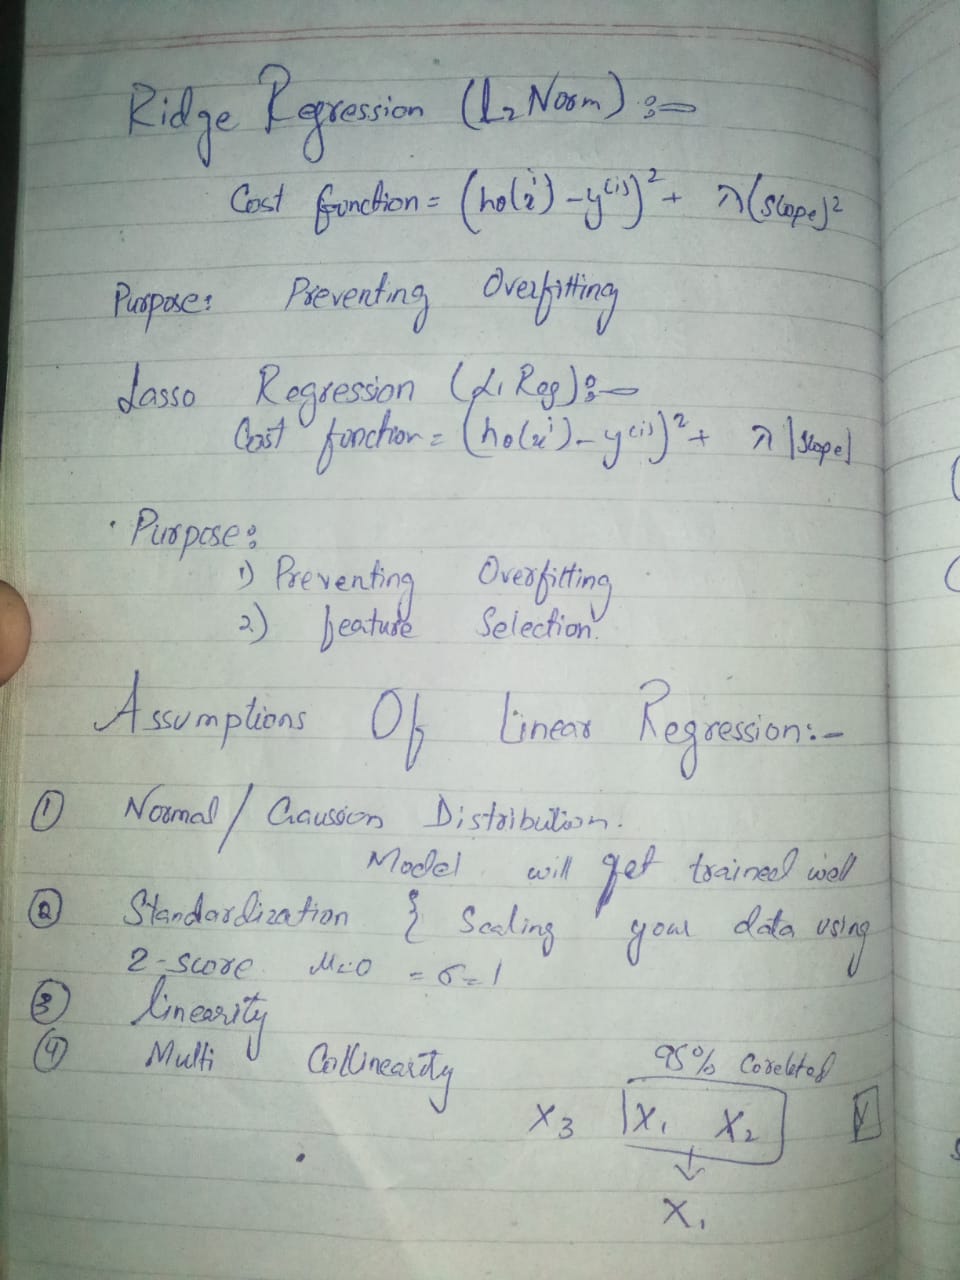 Ridge Regression (L₂ Norm) :-
Cost function = (hθ(x)ⁱ - y⁽ⁱ⁾)² + λ(slope)²
Purpose: Preventing Overfitting
Lasso Regression (L₁ Reg) :-
Cost function = (hθ(xⁱ) - y⁽ⁱ⁾)² + λ |slope|
• Purpose:
1) Preventing Overfitting
2) feature Selection.
Assumptions Of Linear Regression:-
① Normal / Gaussian Distribution.
Model will get trained well
② Standardization } Scaling your data using
Z-score μ=0 = σ=1
③ linearity
④ Multi Collinearity
95% Corelated
X₃ X₁ X₂ Y
↓
X₁